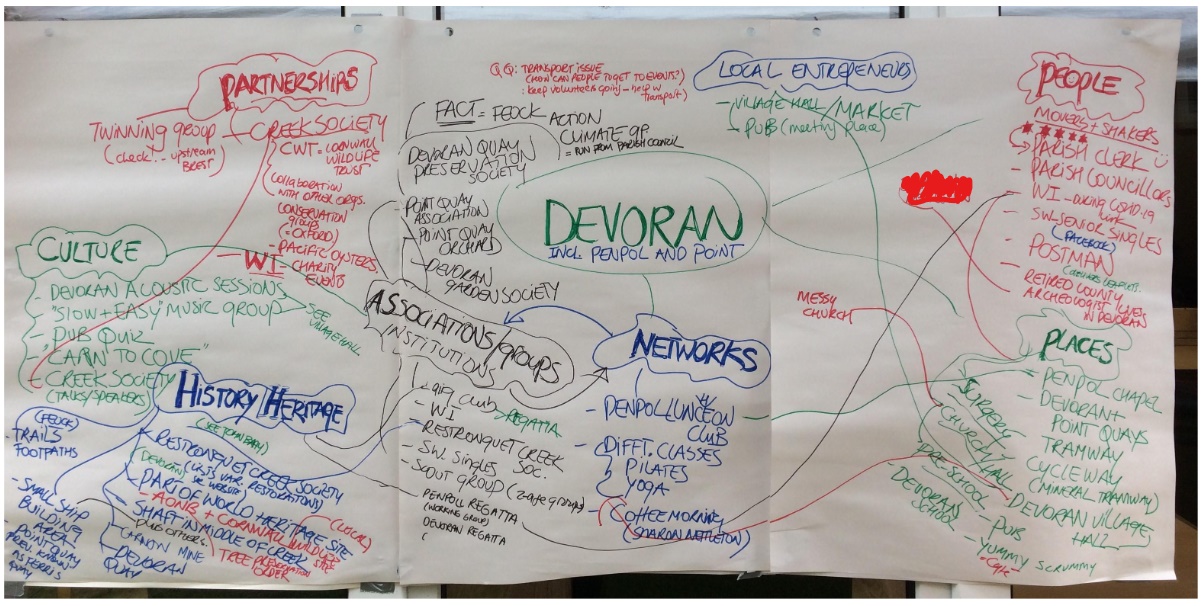 PARTNERSHIPS
TWINNING GROUP - CREEK SOCIETY
(check! - upstream
BREST)
CWT = CORNWALL
WILDLIFE
TRUST
(COLLABORATION
WITH OTHER ORGS.
CONSERVATION
GROUPS
(=OXFORD)
- PACIFIC OYSTERS,
- WI - CHARITY
EVENTS
CULTURE
- DEVORAN ACOUSTIC SESSIONS
- "SLOW + EASY" MUSIC GROUP
SEE VILLAGE HALL
- PUB QUIZ
- "CARN TO COVE"
- CREEK SOCIETY
(TALKS/SPEAKERS)
HISTORY HERITAGE
(FEOCK)
- TRAILS
FOOTPATHS
- SMALL SHIP
BUILDING
AREA
- POINT QUAY
PREV. KNOWN
AS FERRIS
QUAY
- RESTRONGUET CREEK SOCIETY
- PART OF WORLD HERITAGE SITE
- AONB + CORNWALL WILDLIFE SITE
(LOCAL)
- SHAFT IN MIDDLE OF CREEK
TREE PRESERVATION
ORDER
- CARNON MINE
- DEVORAN
QUAY
QQ: TRANSPORT ISSUE
(HOW CAN PEOPLE TO GET TO EVENTS?)
: keep volunteers going - help w
transport)
FACT = FEOCK ACTION
CLIMATE GP.
= RUN FROM PARISH COUNCIL
DEVORAN QUAY
PRESERVATION
SOCIETY
- POINT QUAY
ASSOCIATION
- POINT QUAY
ORCHARD
- DEVORAN
GARDEN SOCIETY
ASSOCIATIONS/groups
INSTITUTIONS
- gig club
- REGATTA
- WI
- RESTRONGUET CREEK
SOC.
- SW. SINGLES
- SCOUT GROUP (2 age groups)
- PENPOLL REGATTA
(WORKING GROUP)
DEVORAN REGATTA
(
DEVORAN
INCL. PENPOL AND POINT
NETWORKS
- PENPOL LUNCEON
CLUB
- DIFFT. CLASSES
PILATES
YOGA
- COFFEE MORNING
(SHARON NETTLETON)
LOCAL ENTREPENEURS
- VILLAGE HALL/MARKET
- PUB (meeting place)
MESSY
CHURCH
PEOPLE
MOVERS + SHAKERS
- PARISH CLERK
- PARISH COUNCILLORS
- WI - DURING COVID-19
LINK
- SW SENIOR SINGLES
(FACEBOOK)
- POSTMAN
- RETIRED COUNTY
ARCHEOLOGIST LIVES
IN DEVORAN
PLACES
- PENPOL CHAPEL
- DEVORAN +
POINT QUAYS
- TRAMWAY
CYCLEWAY
(MINERAL TRAMWAY)
- DEVORAN VILLAGE
HALL
- SURGERY
- CHURCH/
HALL
- PRE-SCHOOL
- DEVORAN
SCHOOL
- PUB
- YUMMY SCRUMMY
- Cafe -